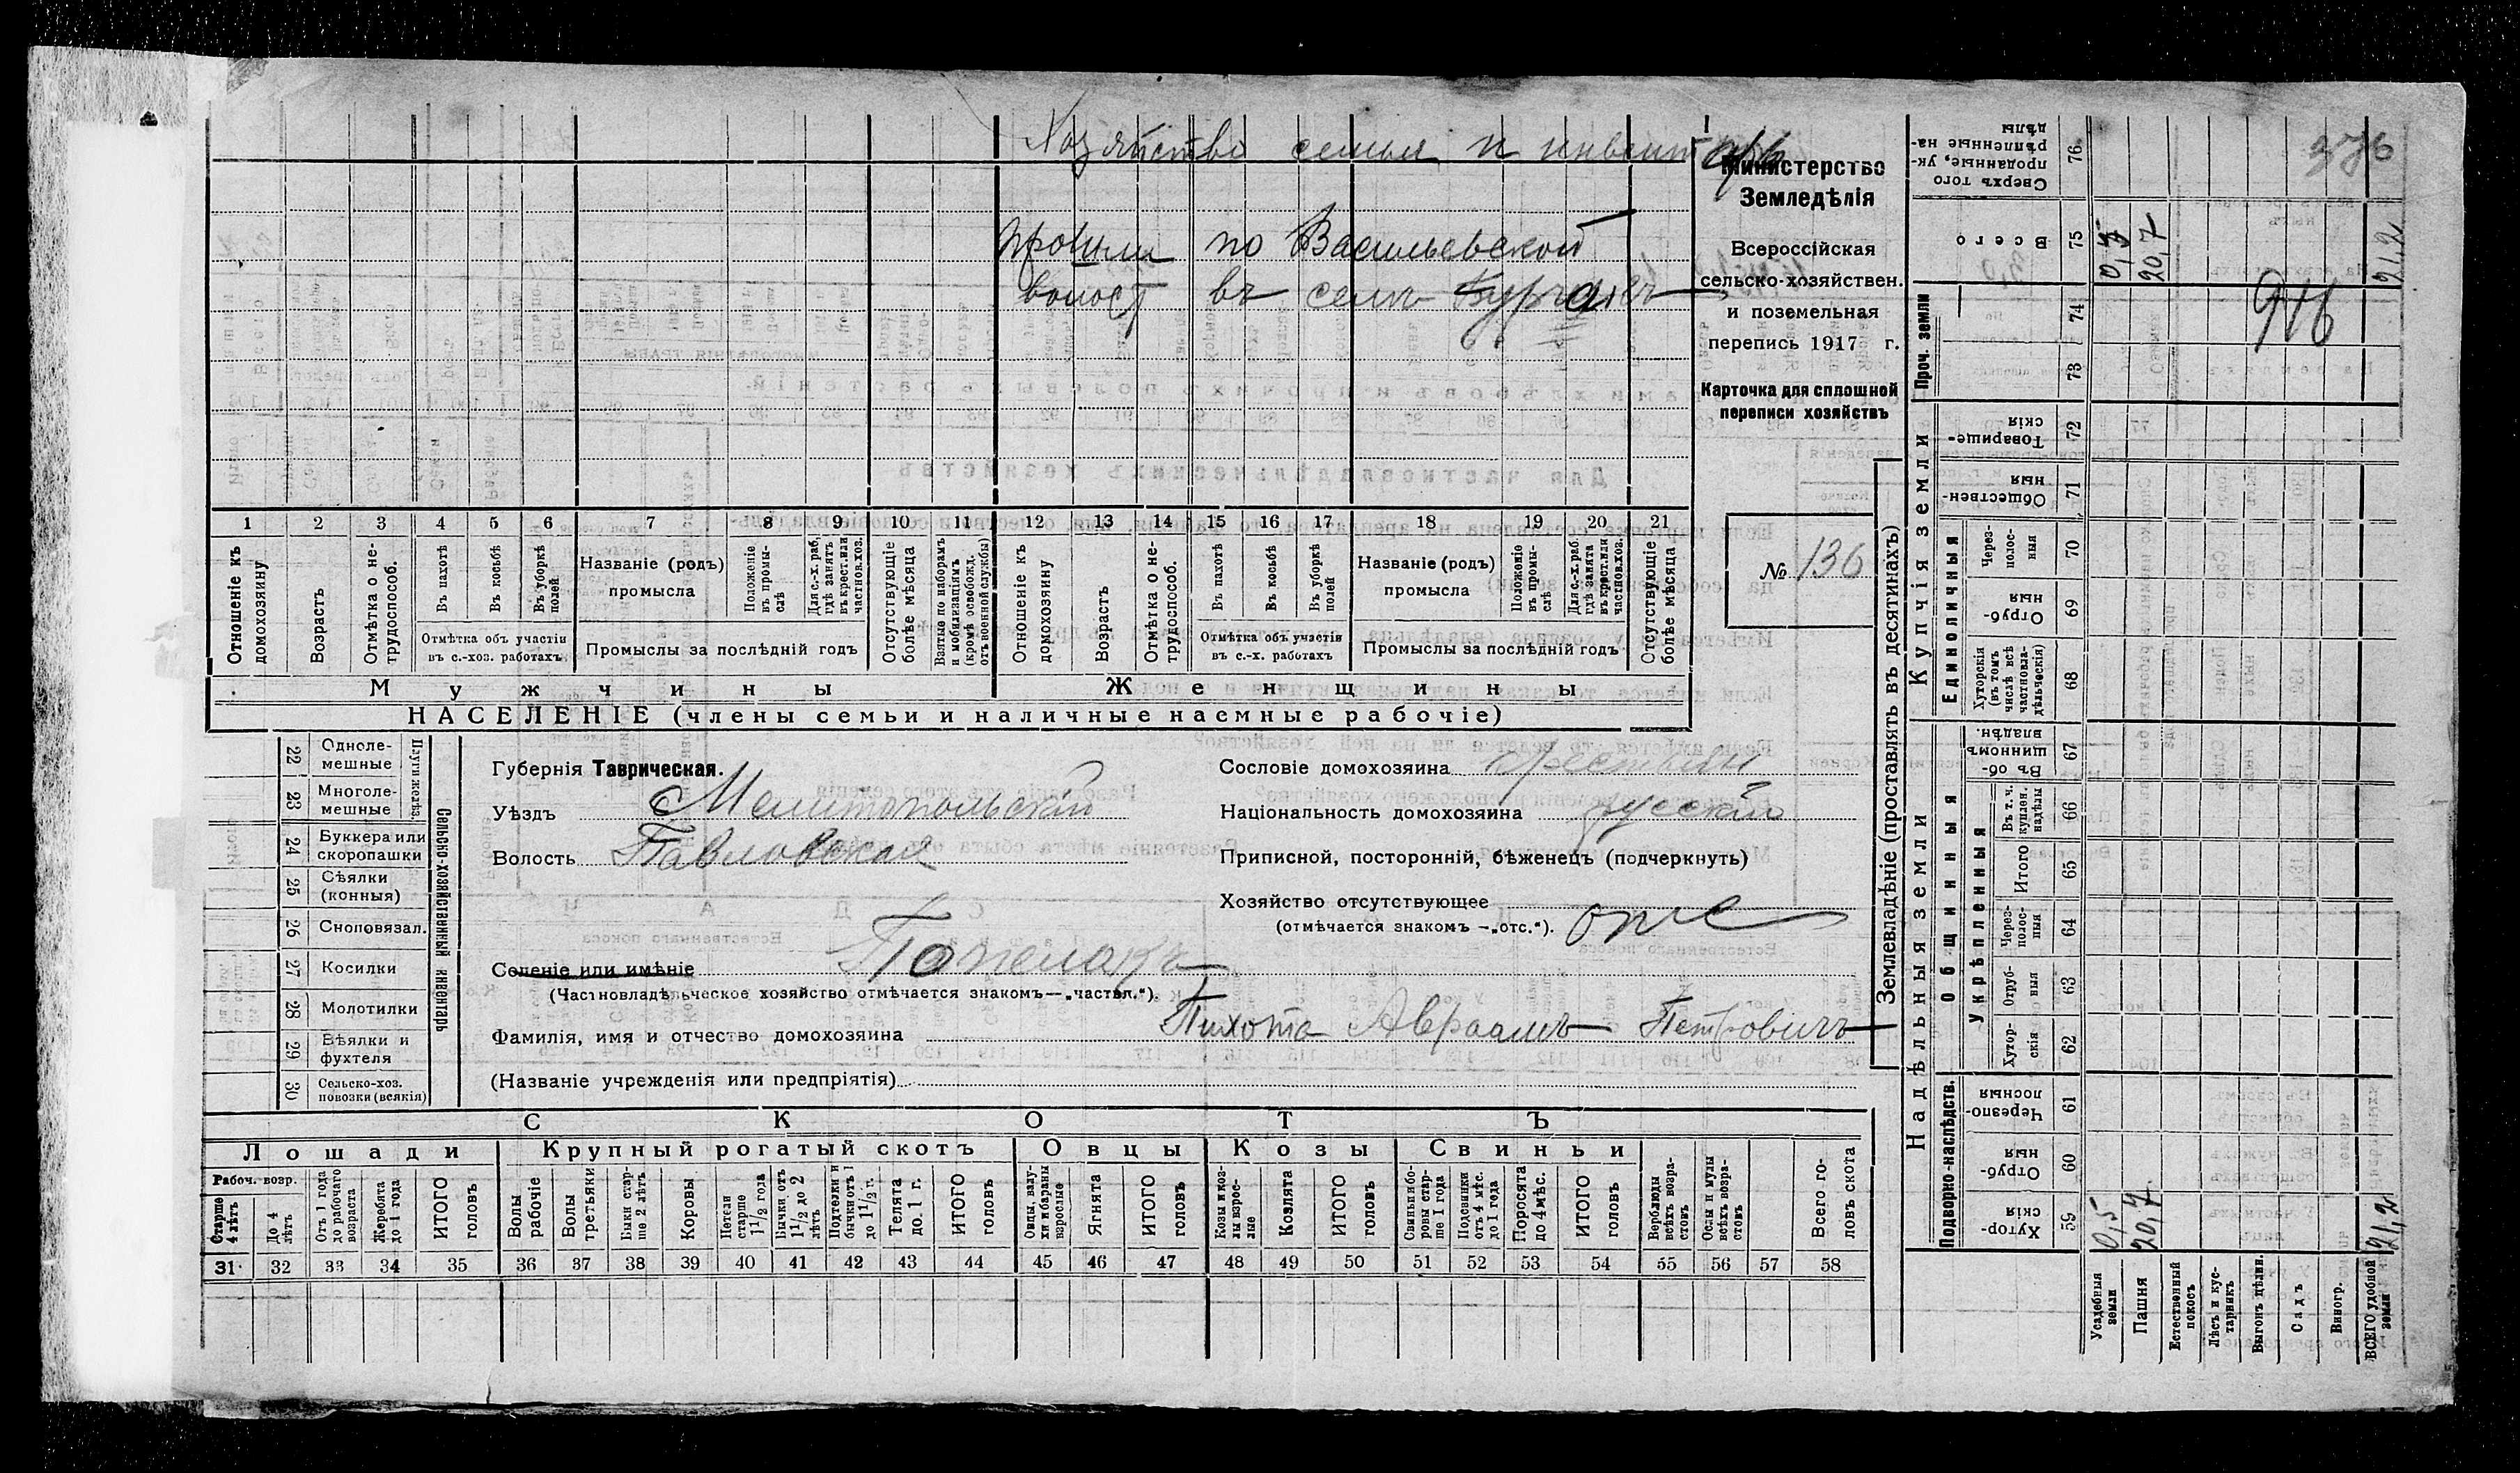 Хозяйство семьи и инвентарь
прошли по Васильевской
волост въ селѣ
376
916
Министерство
Земледѣлія
Всероссійская
сельско-хозяйствен.
и поземельная
перепись 1917 г.
Карточка для сплошной
переписи хозяйствъ
№ 136
1 2 3 4 5 6 7 8 9 10 11 12 13 14 15 16 17 18 19 20 21
Отношеніе къ домохозяину
Возрастъ
Отмѣтка о нетрудоспособ.
Въ пахотѣ
Въ косьбѣ
Въ уборкѣ полей
Отмѣтка объ участіи
въ с.-хоз. работахъ
Названіе (родъ)
промысла
Положеніе въ промыслѣ
Для с.-х. раб. гдѣ занятъ въ крест. или частновл. хоз.
Промыслы за послѣдній годъ
Отсутствующіе болѣе мѣсяца
Взятые по наборамъ и мобилизаціямъ (кромѣ освобожд. отъ военной службы)
Отношеніе къ домохозяину
Возрастъ
Отмѣтка о не-трудоспособ.
Въ пахотѣ
Въ косьбѣ
Въ уборкѣ полей
Отмѣтка объ участіи
въ с.-х. работахъ
Названіе (родъ)
промысла
Положеніе въ промыслѣ
Для с.-х. раб. гдѣ занята въ крест. или частнов. хоз.
Промыслы за послѣдній годъ
Отсутствующіе болѣе мѣсяца
Мужчины
Женщины
НАСЕЛЕНІЕ (члены семьи и наличные наемные рабочіе)
22 Однолемешные
23 Многолемешные
Плуги желѣз.
24 Буккера или скоропашки
25 Сѣялки (конныя)
26 Сноповязал.
27 Косилки
28 Молотилки
29 Вѣялки и фухтеля
30 Сельско-хоз. повозки (всякія)
Сельско-хозяйственный инвентарь
Губернія Таврическая.
Уѣздъ Мелитопольскій
Волость Павловская
Селеніе или имѣніе
(Частновладѣльческое хозяйство отмѣчается знакомъ—„частвл.“).
Фамилія, имя и отчество домохозяина Пихота Авраамъ Петровичъ
(Названіе учрежденія или предпріятія)
Сословіе домохозяина
Національность домохозяина русскій
Приписной, посторонній, бѣженецъ (подчеркнуть)
Хозяйство отсутствующее отс
(отмѣчается знакомъ —„отс.“).
СКОТЪ
Лошади
Крупный рогатый скотъ
Овцы
Козы
Свиньи
Рабоч. возр.
Старше 4 лѣтъ
До 4 лѣтъ
Отъ 1 года до рабочаго возраста
Жеребята до 1 года
ИТОГО головъ
Волы рабочіе
Волы третьяки
Быки старше 2 лѣтъ
Коровы
Нетели старше 1 1/2 года
Бычки отъ 1 1/2 до 2 лѣтъ
Подтелки и бычки отъ 1 до 1 1/2 г.
Телята до 1 г.
ИТОГО головъ
Овцы, валухи и бараны взрослые
Ягнята
ИТОГО головъ
Козы и козлы взрослые
Козлята
ИТОГО головъ
Свиньи и боровы старше 1 года
Подсвинки отъ 4 мѣс. до 1 года
Поросята до 4 мѣс.
ИТОГО головъ
Верблюды всѣхъ возрастовъ
Ослы и мулы всѣхъ возрастовъ
Всего головъ скота
31 32 33 34 35 36 37 38 39 40 41 42 43 44 45 46 47 48 49 50 51 52 53 54 55 56 57 58
Землевладѣніе (проставлять въ десятинахъ)
Надѣльныя земли
Купчія земли
Проч. земли
Подворно-наслѣдств.
Общинныя
Укрѣпленныя
Единоличныя
59 Хуторскія
60 Отрубныя
61 Черезполосныя
62 Хуторскія
63 Отрубныя
64 Черезполосныя
65 Итого
66 Въ т. ч. куплен. надѣлы
67 Въ общинномъ владѣн.
68 Хуторскія (въ томъ числѣ всѣ частновладѣльческія)
69 Отрубныя
70 Черезполосныя
71 Общественныя
72 Товарищескія
73
74
75 Всего
76 Сверхъ того проданные, укрѣпленные надѣлы
Усадебныя земли 0,5 0,5
Пашня 20,7 20,7
Естественный покосъ
Лѣсъ и кустарникъ
Выгонъ дѣлин.
Садъ
Виногр.
ВСЕГО удобной земли 21,2 21,2